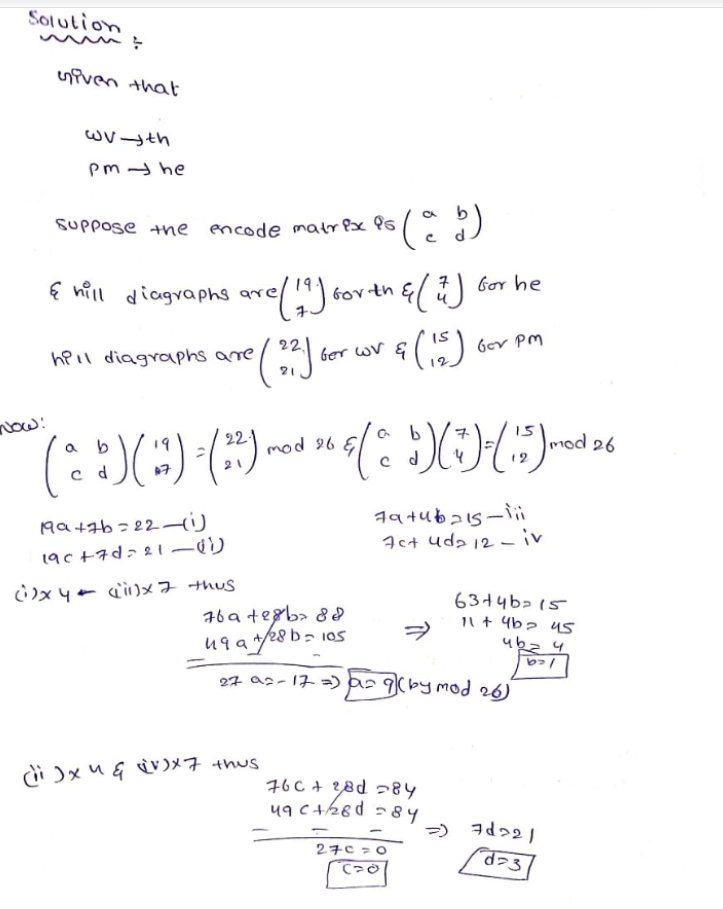 Solution :
given that
wv → th
pm → he
suppose the encode matrix is ( a b
c d )
& hill diagraphs are ( 19
7 ) for th & ( 7
4 ) for he
hill diagraphs are ( 22
21 ) for wv & ( 15
12 ) for pm
Now:
( a b
c d ) ( 19
07 ) = ( 22
21 ) mod 26 & ( a b
c d ) ( 7
4 ) = ( 15
12 ) mod 26
19a + 7b = 22 — (i)
19c + 7d = 21 — (ii)
7a + 4b = 15 — iii
7c + 4d = 12 — iv
(i) x 4 - (iii) x 7 thus
76a + 28b = 88
49a + 28b = 105
27a = -17 ⇒ a = 9 (by mod 26)
⇒ 63 + 4b = 15
11 + 4b = 45
4b = 4
b = 1
(ii) x 4 & (iv) x 7 thus
76c + 28d = 84
49c + 28d = 84
- - -
27c = 0
c = 0
⇒ 7d = 21
d = 3